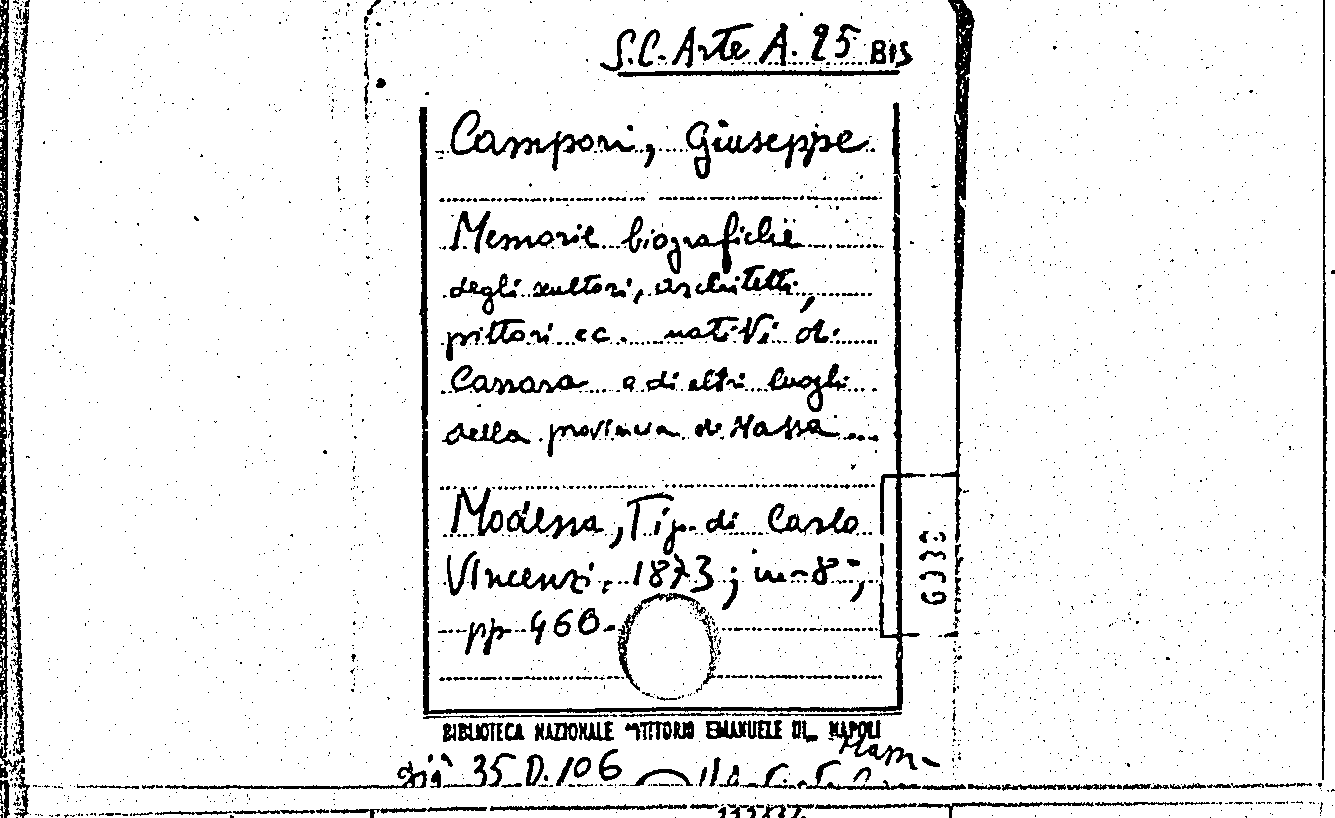 S.C. Arte A. 25 BIS
Campori, Giuseppe
Memorie biografiche
degli scultori, architetti,
pittori ec. nativi di
Carrara e di altri luoghi
della provincia di Massa ...
Modena, Tip. di Carlo
Vincenzi, 1873; in-8°,
pp 460.
BIBLIOTECA NAZIONALE VITTORIO EMANUELE III_ NAPOLI
già 35.D.106